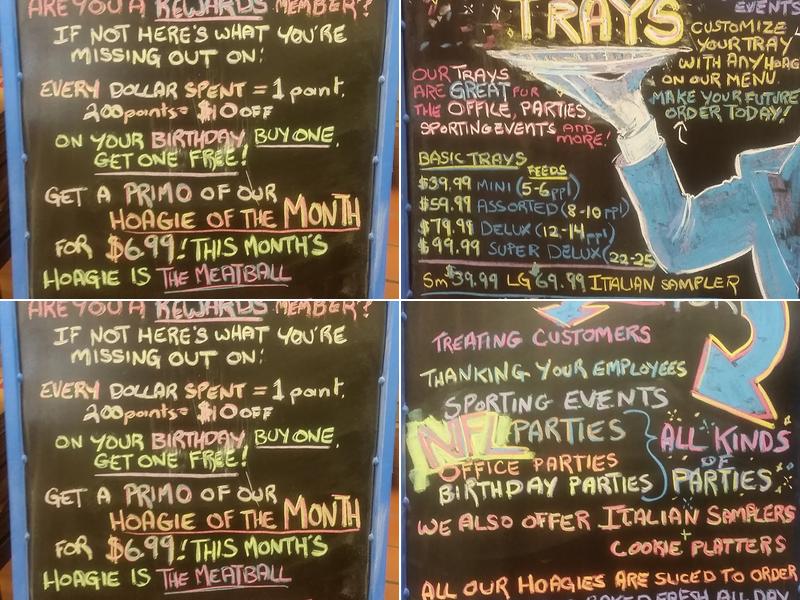 ARE YOU A REWARDS MEMBER?
IF NOT HERE'S WHAT YOU'RE
MISSING OUT ON:
EVERY DOLLAR SPENT = 1 point.
200 points = $10 OFF
ON YOUR BIRTHDAY BUY ONE,
GET ONE FREE!
GET A PRIMO OF OUR
HOAGIE OF THE MONTH
FOR $6.99! THIS MONTH'S
HOAGIE IS THE MEATBALL
TRAYS
EVENTS
CUSTOMIZE
YOUR TRAY
WITH ANY HOAG
ON OUR MENU.
MAKE YOUR FUTURE
ORDER TODAY!
OUR TRAYS
ARE GREAT FOR
THE OFFICE, PARTIES,
SPORTING EVENTS AND
MORE!
BASIC TRAYS FEEDS
$39.99 MINI (5-6ppl)
$59.99 ASSORTED (8-10ppl)
$79.99 DELUX (12-14ppl)
$99.99 SUPER DELUX (22-25
Sm $39.99 LG 69.99 ITALIAN SAMPLER
ARE YOU A REWARDS MEMBER?
IF NOT HERE'S WHAT YOU'RE
MISSING OUT ON:
EVERY DOLLAR SPENT = 1 point.
200 points = $10 OFF
ON YOUR BIRTHDAY BUY ONE,
GET ONE FREE!
GET A PRIMO OF OUR
HOAGIE OF THE MONTH
FOR $6.99! THIS MONTH'S
HOAGIE IS THE MEATBALL
FOR
TREATING CUSTOMERS
THANKING YOUR EMPLOYEES
SPORTING EVENTS
NFL PARTIES
OFFICE PARTIES
BIRTHDAY PARTIES
ALL KINDS
OF
PARTIES
WE ALSO OFFER ITALIAN SAMPLERS
+
COOKIE PLATTERS
ALL OUR HOAGIES ARE SLICED TO ORDER
BAKED FRESH ALL DAY